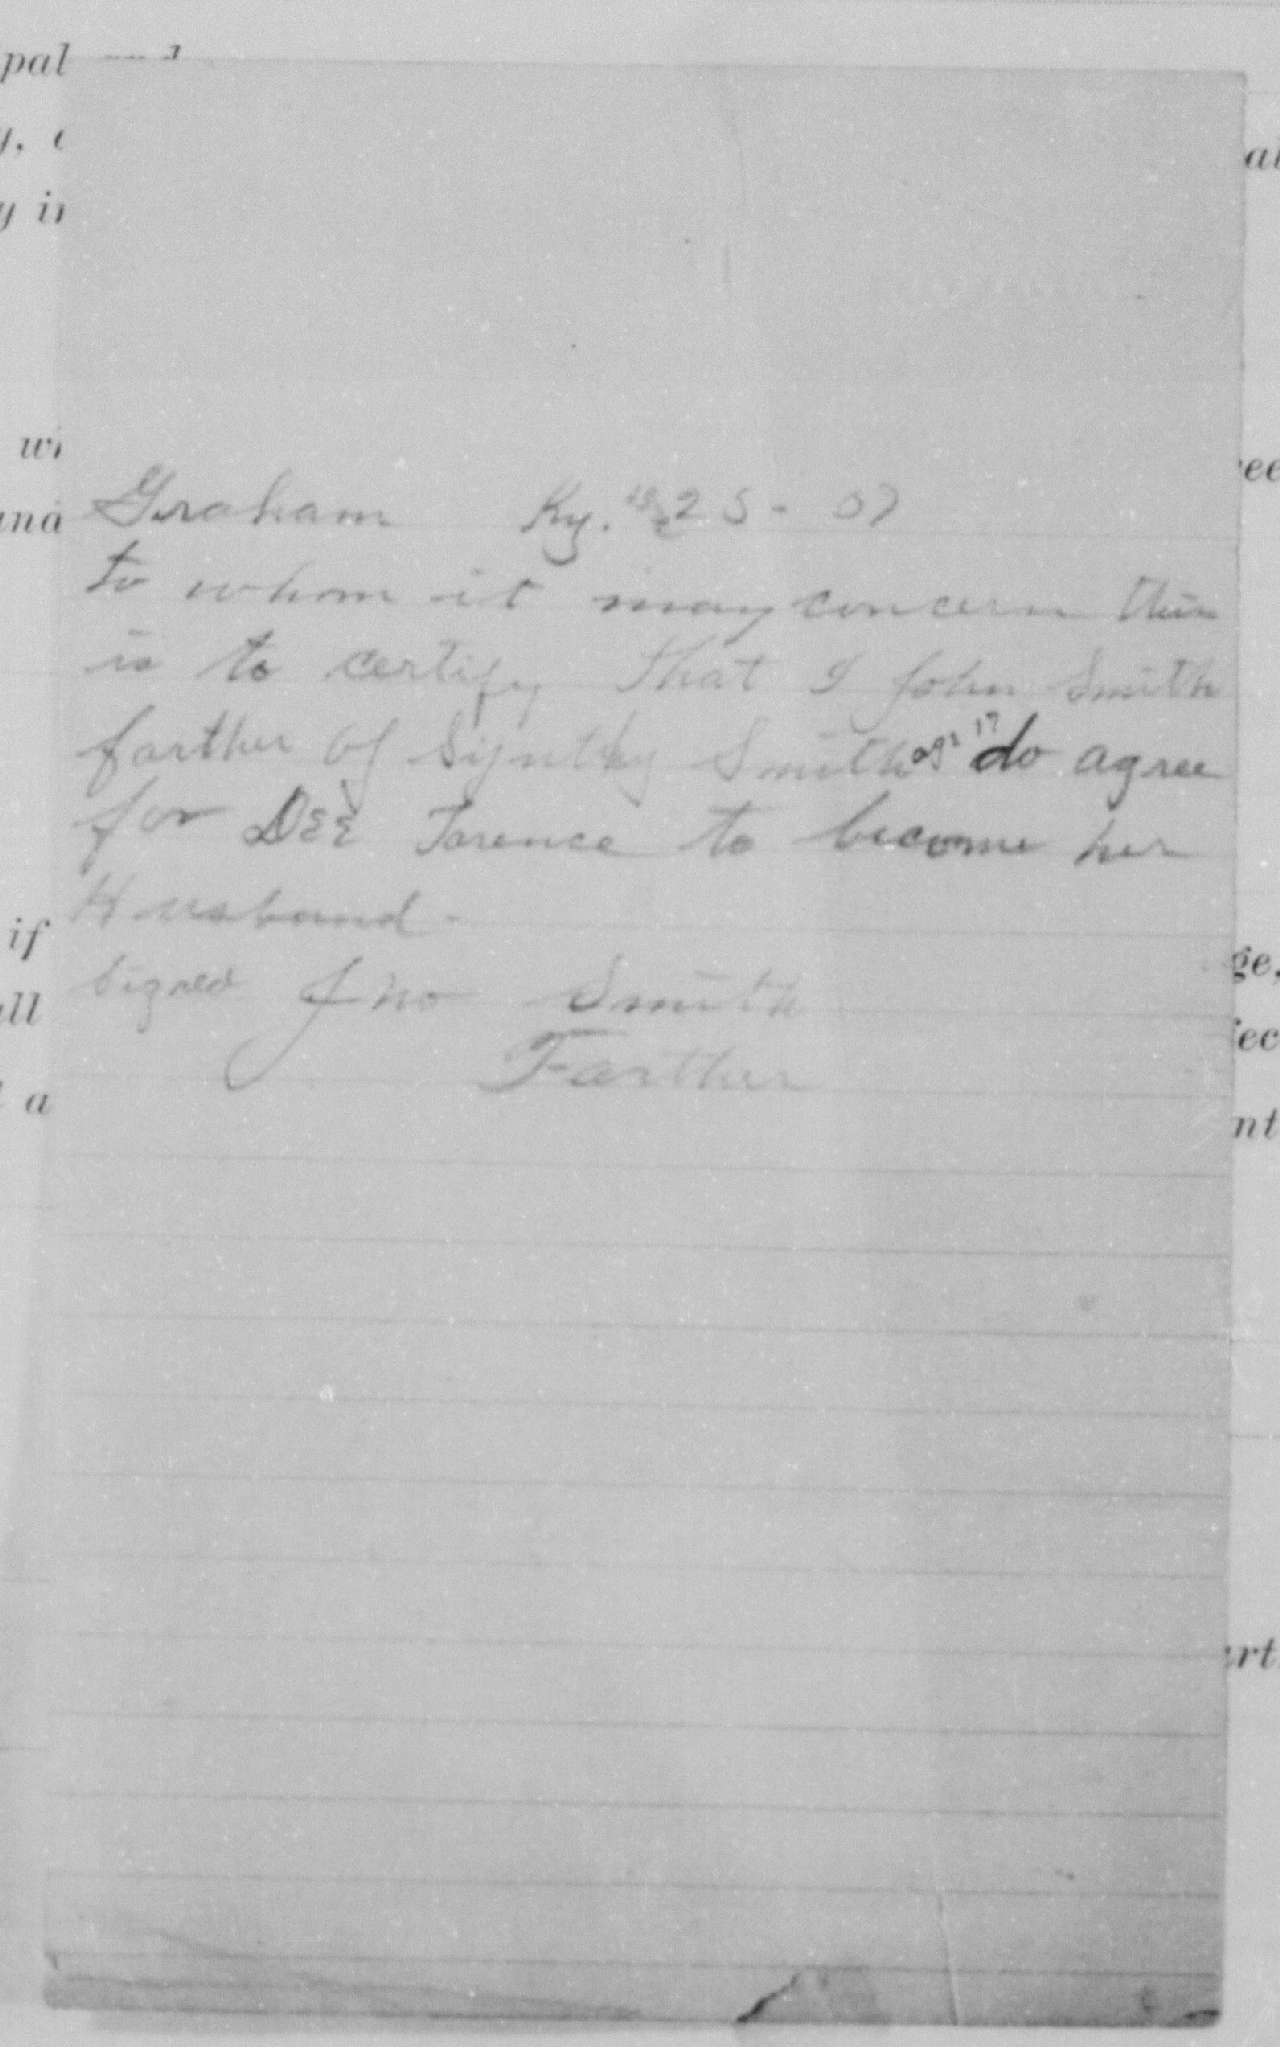 pal
y,
y in
al
wi
ree
Graham Ky. 25 - 07
to whom it may concern this
is to certify that I John Smith
farther of Synthy Smith age 17 do agree
for DEE Torence to become her
Husband -
if
ge,
Signed Jno Smith
all
fec
Farther
a
nt
art